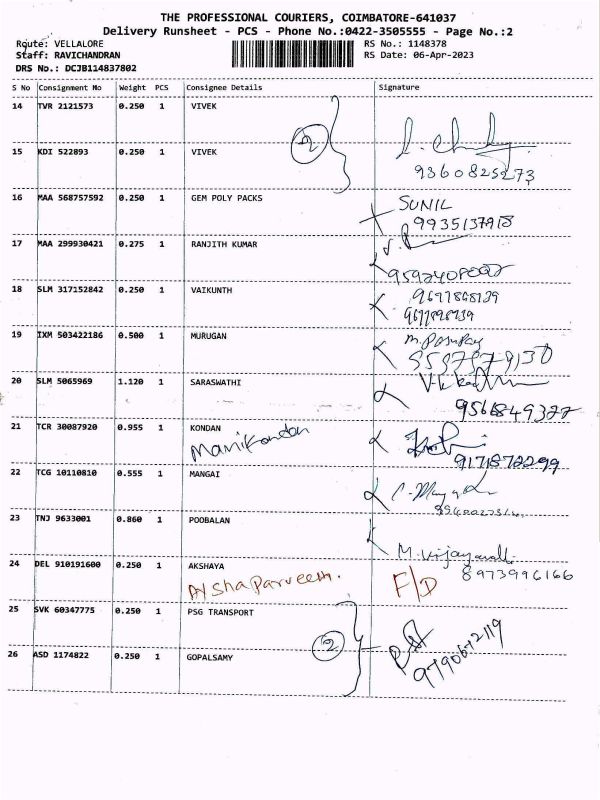 THE PROFESSIONAL COURIERS, COIMBATORE-641037
Delivery Runsheet - PCS - Phone No.:0422-3505555 - Page No.:2
Route: VELLALORE RS No.: 1148378
Staff: RAVICHANDRAN RS Date: 06-Apr-2023
DRS No.: DCJB114837802
S No Consignment No Weight PCS Consignee Details Signature
14 TVR 2121573 0.250 1 VIVEK
2
15 KDI 522893 0.250 1 VIVEK
9360825273
16 MAA 568757592 0.250 1 GEM POLY PACKS SUNIL
9935137918
17 MAA 299930421 0.275 1 RANJITH KUMAR
18 SLM 317152842 0.250 1 VAIKUNTH
19 IXM 503422186 0.500 1 MURUGAN
20 SLM 5065969 1.120 1 SARASWATHI
9566849327
21 TCR 30087920 0.955 1 KONDAN
Manikondan
9171872299
22 TCG 10110810 0.555 1 MANGAI
23 TNJ 9633001 0.860 1 POOBALAN
24 DEL 910191600 0.250 1 AKSHAYA
8973996166
Aysha parveen. F/D
25 SVK 60347775 0.250 1 PSG TRANSPORT
2
26 ASD 1174822 0.250 1 GOPALSAMY
9790672119